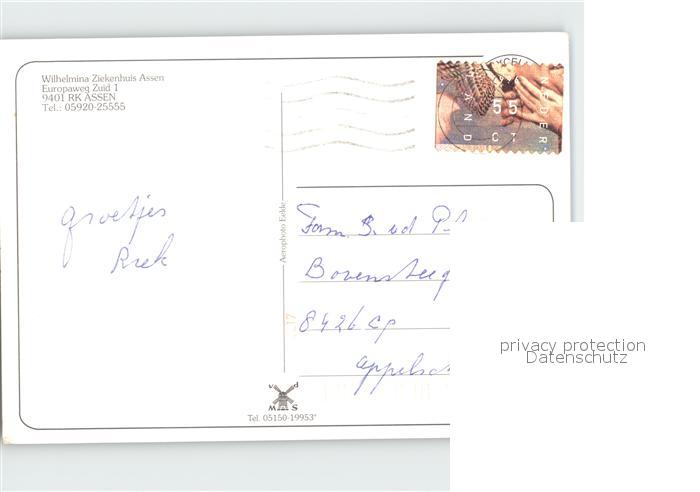 Wilhelmina Ziekenhuis Assen
Europaweg Zuid 1
9401 RK ASSEN
Tel.: 05920-25555
NEDERLAND
55
CT
groetjes
Aerophoto Eelde
Fam. B. vd
8426 CP
Appelsc
v d
M S
Tel. 05150-19953*
privacy protection
Datenschutz